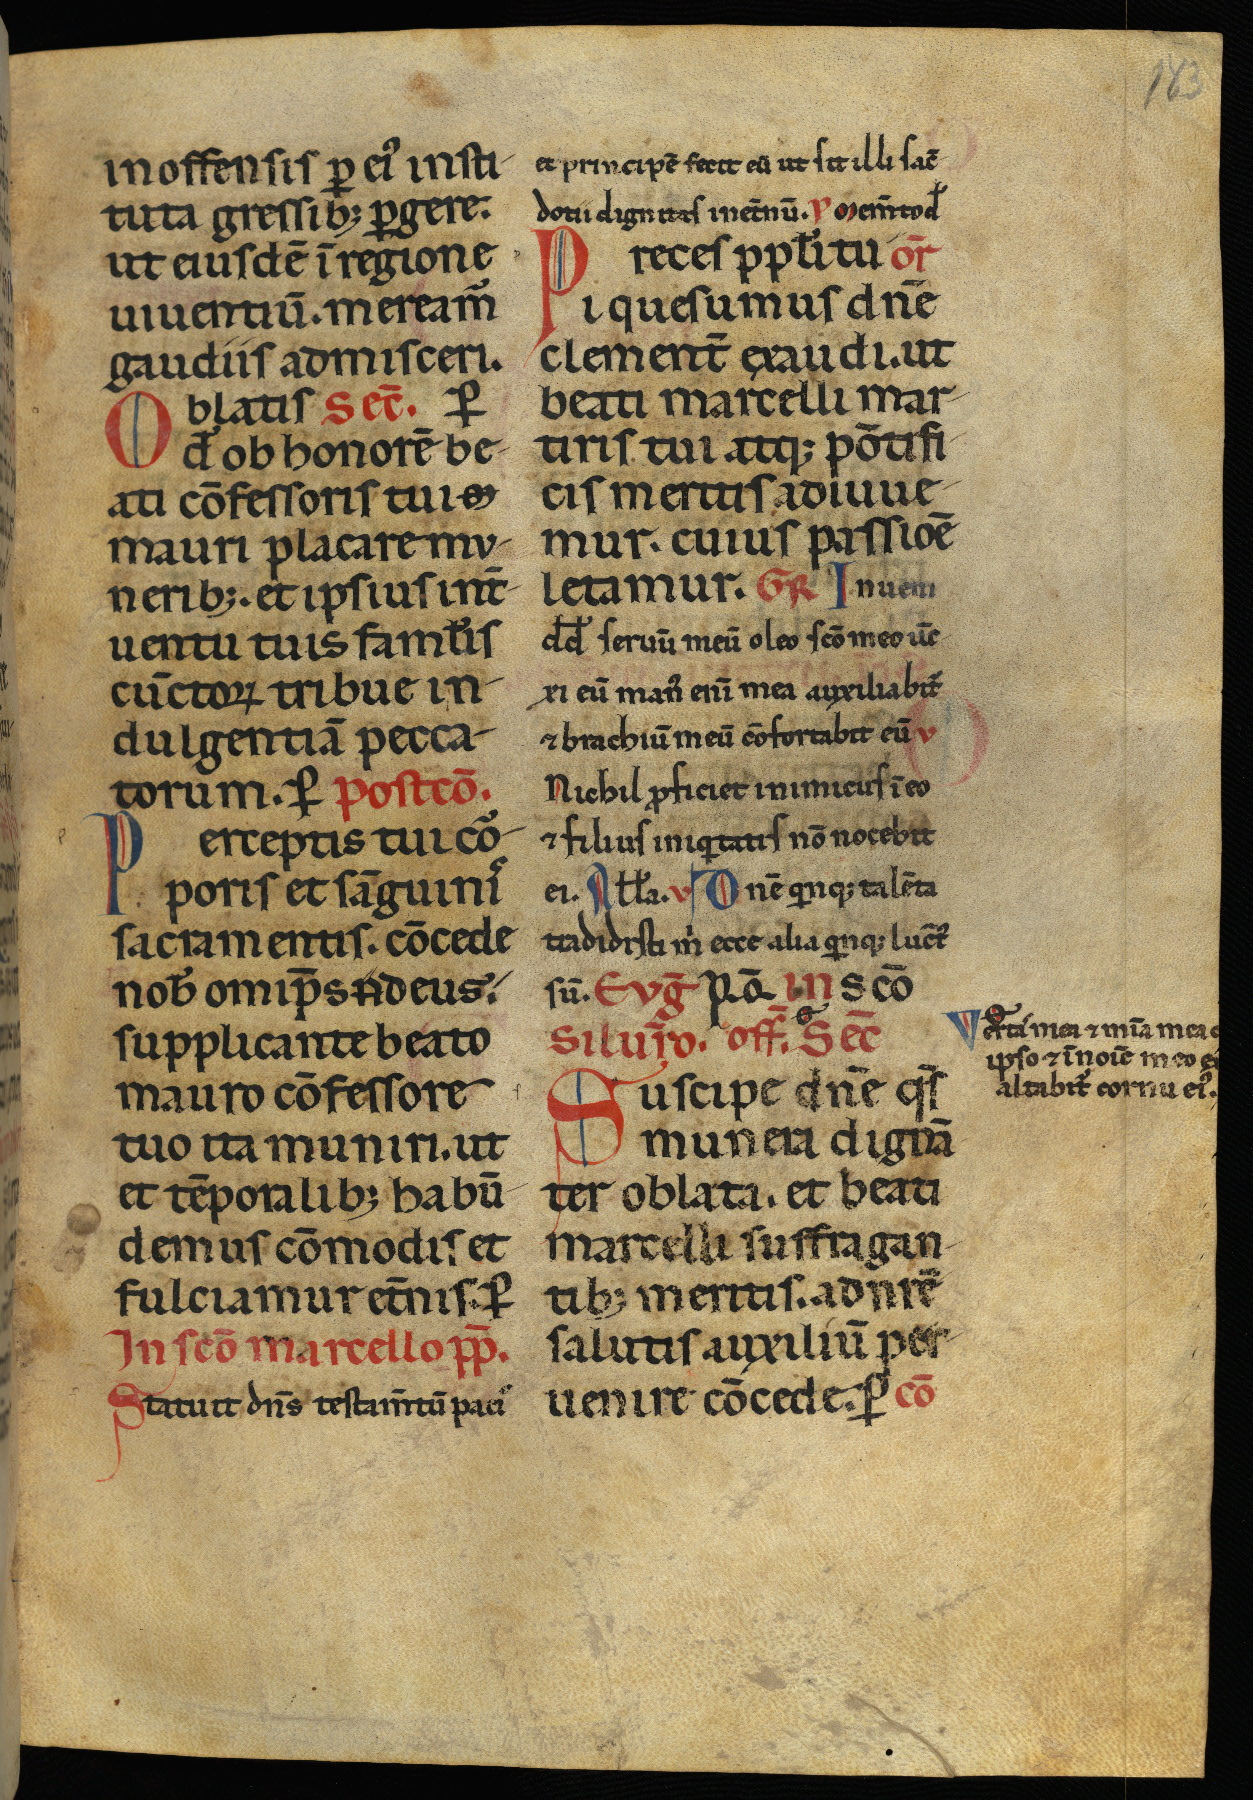 183
inoffensis ꝑ ei᾿ insti-
tuta gressib; ꝑgere.
ut eiusdē ī regione
uiuentiū. meream̄
gaudiis admisceri.
Oblatis Sec̄. ꝑ
qd̄ ob honorē be-
ati cōfessoris tui
mauri placare mu-
nerib;. et ipsius int̄-
uentu tuis famĺis
cūctoꝝ tribue in-
dulgentiā pecca-
torum. ꝑ Postcō.
Perceptis tui cor-
poris et sāguinis
sacramentis. cōcede
nob̄ omip̄s deus.
supplicante beato
mauro cōfessore
tuo ita muniri. ut
et tēporalib; habū-
demus cōmodis et
fulciamur et̄nis. ꝑ
In scō Marcello pp̄.
Statuit dn̄s testam̄tū paci᾿
et principē fecit eū ut sit illi sac̄-
dotii dignitas inet̄nū. P Mem̄to d̄
Preces ppĺi tu or̄
i quesumus dn̄e
clement̄ exaudi. ut
beati marcelli mar-
tiris tui atq; pōtifi-
cis meritis adiuue-
mur. cuius passiōē
letamur. GR Inueni
dd̄ seruū meū oleo scō meo ūc-
xi eū man᾿ eni mea auxiliabit᾿
⁊ brachiū meū cōfortabit eū V
Nichil ꝓficiet inimicus ī eo
⁊ filius iniqtatis nō nocebit
ei. Aĺĺa. V Dn̄e qinq; talēta
tradidisti m ecce alia qinq; luc̄t᾿
sū. Evḡ P.Q. IN Scō
Silur̄o. Off. Sec̄
Suscipe dn̄e qs̄
munera dignā-
ter oblata. et beati
marcelli suffragan-
tib; meritis. ad nr̄ē
salutis auxiliū per-
uenire cōcede. ꝑ cō
Veritas mea ⁊ mīa mea c
ipso ⁊ ī noīe meo ex
altabit᾿ cornu ei᾿.